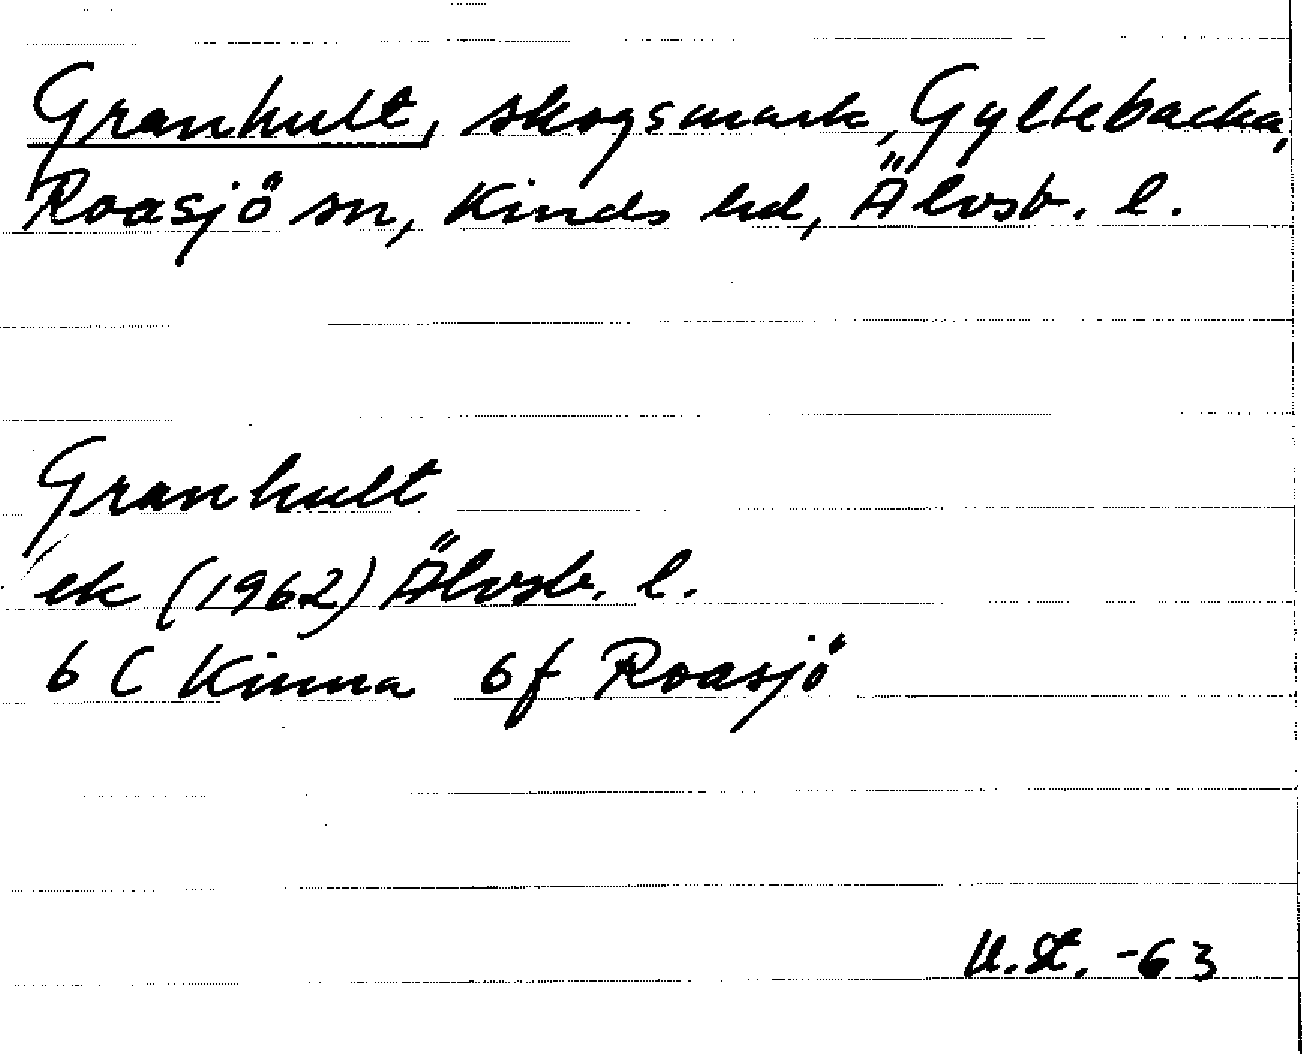 Granhult, skogsmark, Gyltebacka,
Roasjö sn, Kinds hd, Älvsb. l.
Granhult
ek (1962) Älvsb. l.
6 C Kinna 6f Roasjö
U.St. -63